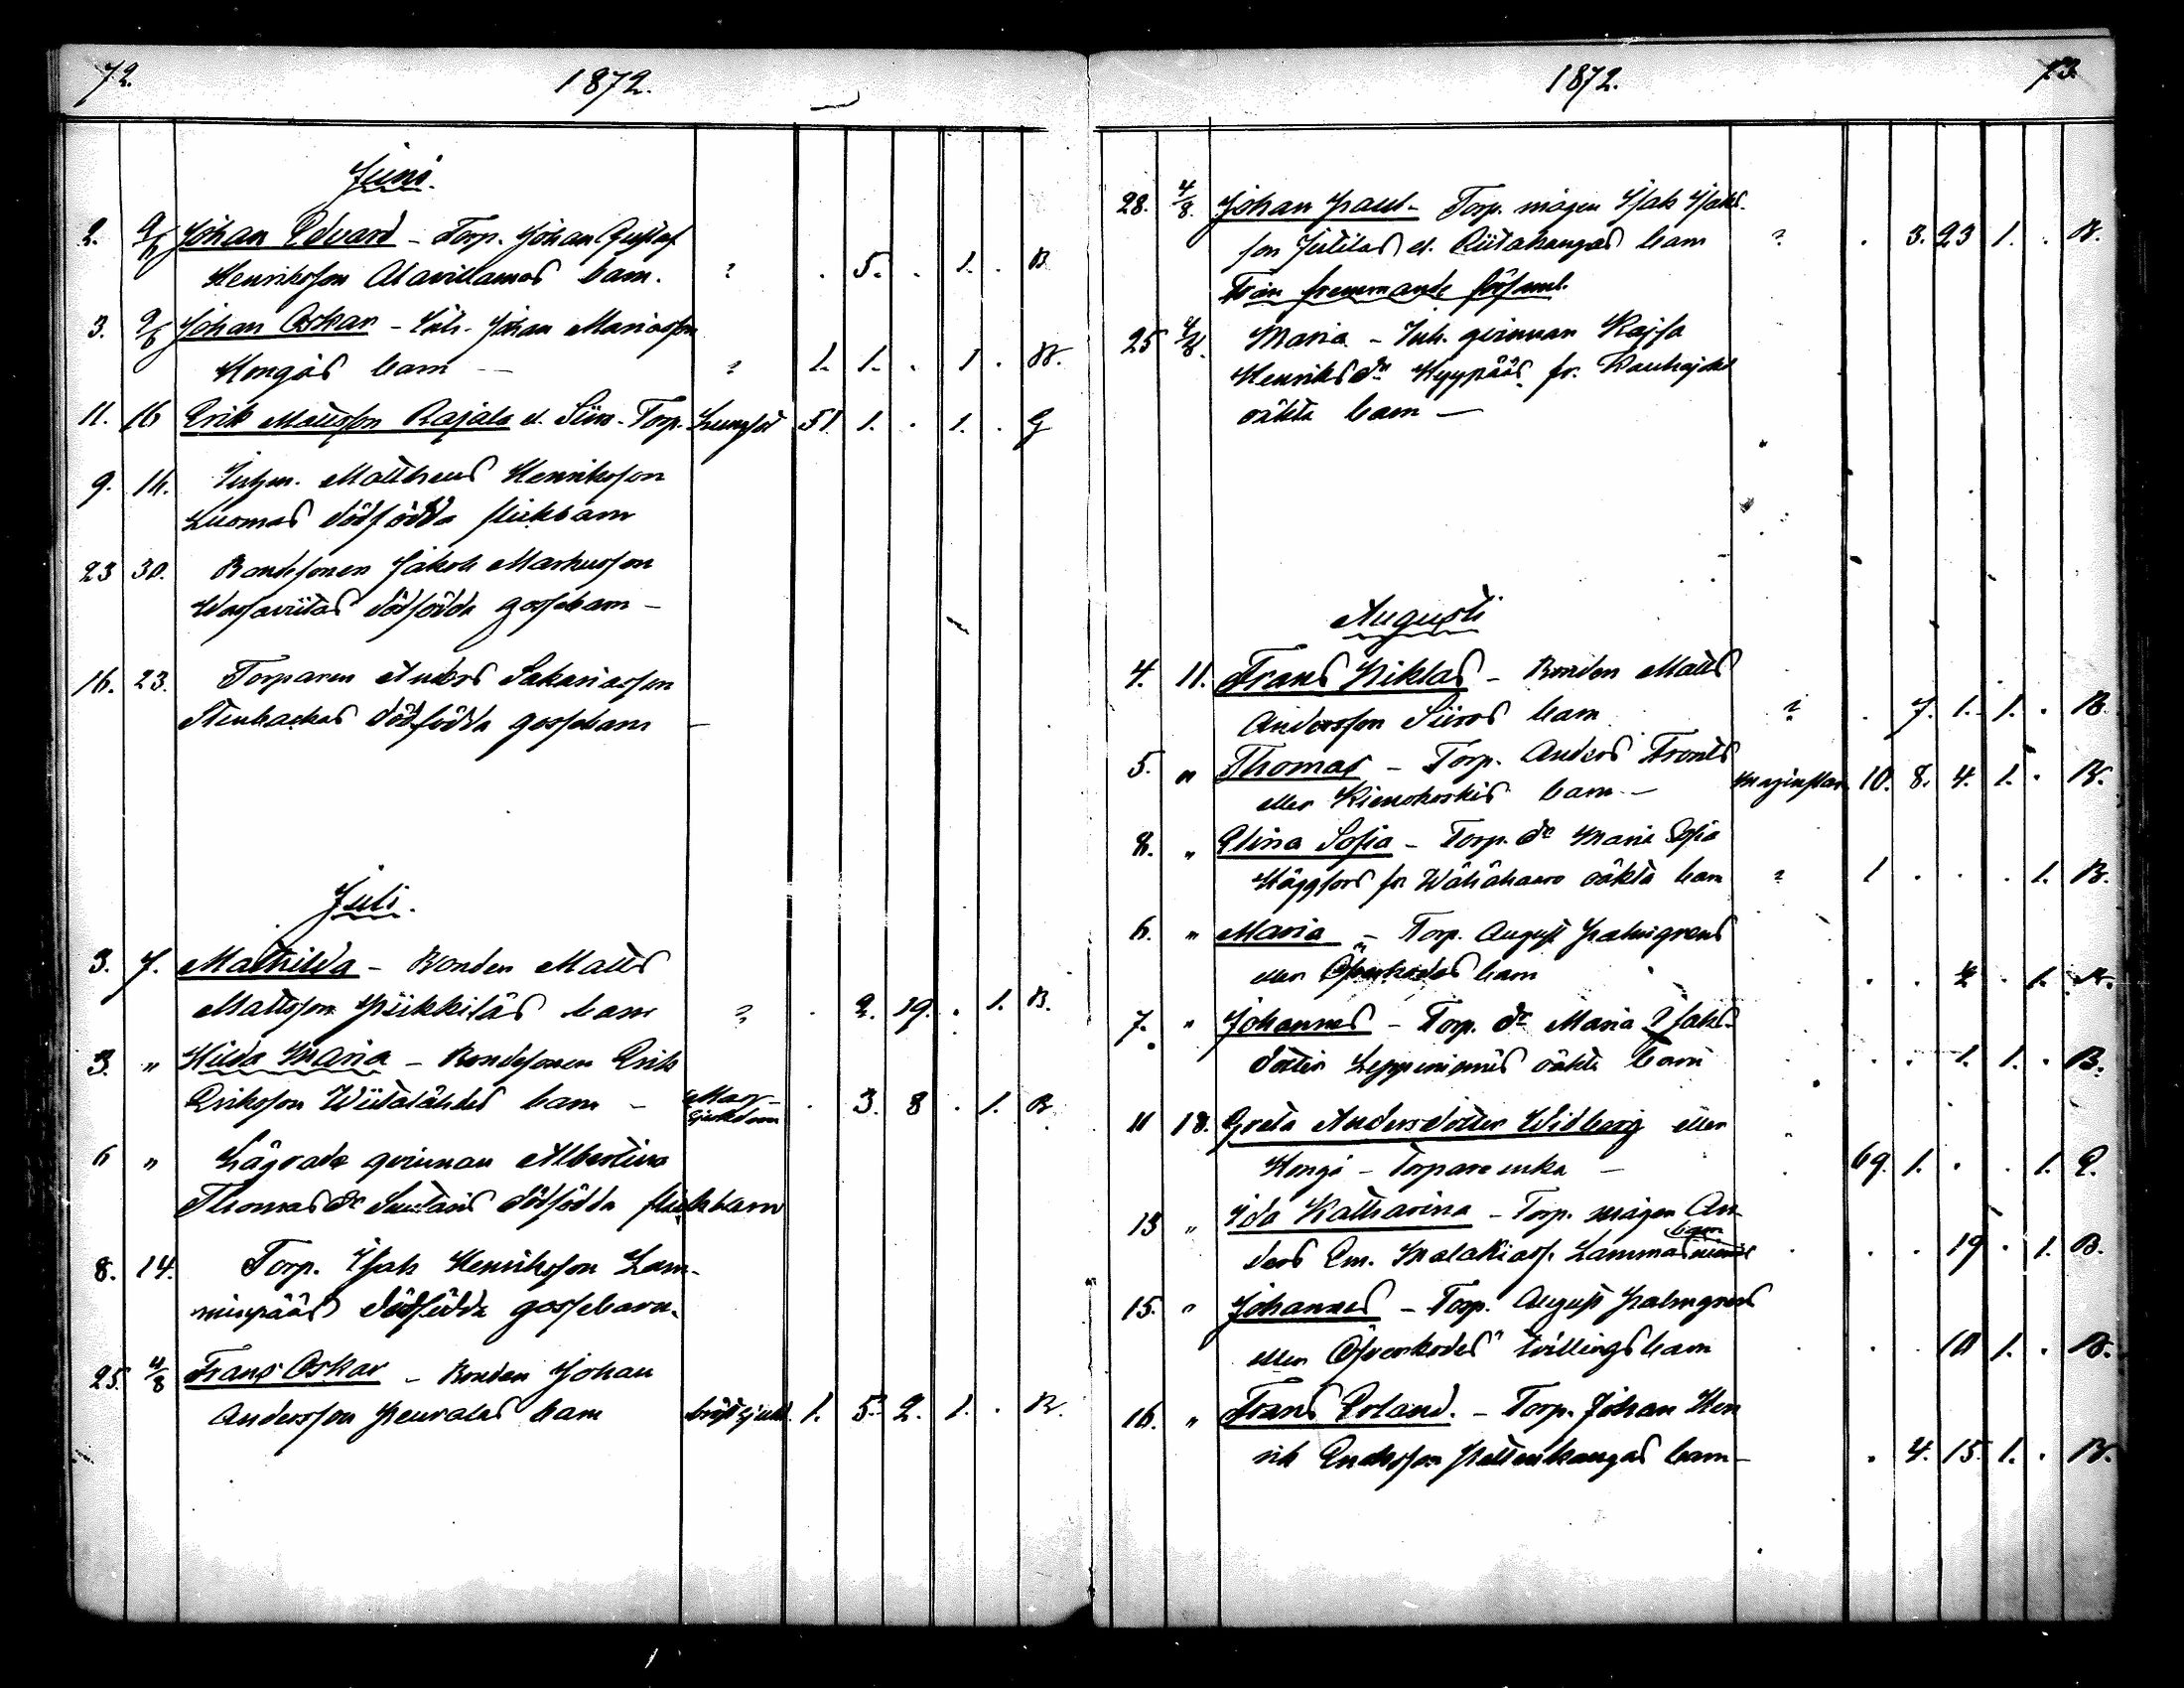 72. 1872.
Juni.
2. 9/6 Johan Edvard - Torp. Johan Gustaf
Henriksson Alavillamos barn. ? . 5. . 1. . B
3. 9/6 Johan Oskar - Inh. Johan Mariasson
Hongas barn - ? 1. 1. . 1 . B.
11. 16 Erik Mattsson Rajala el. Siiro - Torp. Lungsot 51. 1. . 1. . G
9. 16. Inhm. Mattheus Henriksson
Luomas dödfödda flickbarn
23 30. Bondesonen Jakob Markusson
dödfödda gossebarn -
16. 23. Torparen Anders Sakariasson
Stenbackas dödfödda gossebarn -
Juli.
3. 7. Mathilda - Bonden Matts
Mattsson Piikkiläs barn ? . 2. 19. . 1. B.
3. " Hilda Maria - Bondesonen Erik
Eriksson Wiitalähdes barn - Mag-
sjukdom . 3. 8 . 1. B
6 " Lägrade qvinnan Albertina
Thomas dr dödfödda flickbarn
8. 14. Torp. Isak Henriksson Lam-
minpääs dödfödda gossebarn.
25. 4/8 Frans Oskar - Bonden Johan
Andersson Peuralas barn bröstsjukd. 1. 5. 2. 1. . B.
1872. 73.
28. 4/8. Johan Paul - Torp. mågen Isak Isaks-
son Jutilas el. Riitakangas barn ? . 3. 23 1. . B.
Från fremmande församl.
25 4/8. Maria - Inh. qvinnan Kajsa
Henriks dr Kyypääs fr. Kauhajoki
oäkta barn -
Augusti
4. 11. Frans Niklas - Bonden Matts
Andersson Siiros barn ? . 7. 1. 1. . B.
5. " Thomas - Torp. Anders Fronts
eller barn - Maginflam. 10. 8. 4. 1. . B.
8. " Elina Sofia - Torp. dr Maria Sofia
Häggfors fr oäkta barn ? 1 . . . 1. B.
6. " Maria - Torp. August Palmgrens
eller Öfverkodes barn . . 2 . 1. B.
7. " Johannes - Torp. dr Maria Isaks-
dotter Leppiniemis oäkta barn . . . 1. 1. . B.
11 18. Greta Andersdotter Widberg eller
Hongo - Torpareenka - . 69. 1. . . 1. E.
13 " Ida Katharina - Torp. mågen An-
ders Em. Malakiass. Lammasniemis barn . . . 19 . 1. B.
15. " Johannes - Torp. August Palmgrens
eller Öfverkodes tvillingsbarn . . . 10 1. . B.
16. " Frans Erland. - Torp. Johan Hen
rik barn - . 4. 15. 1. . B.